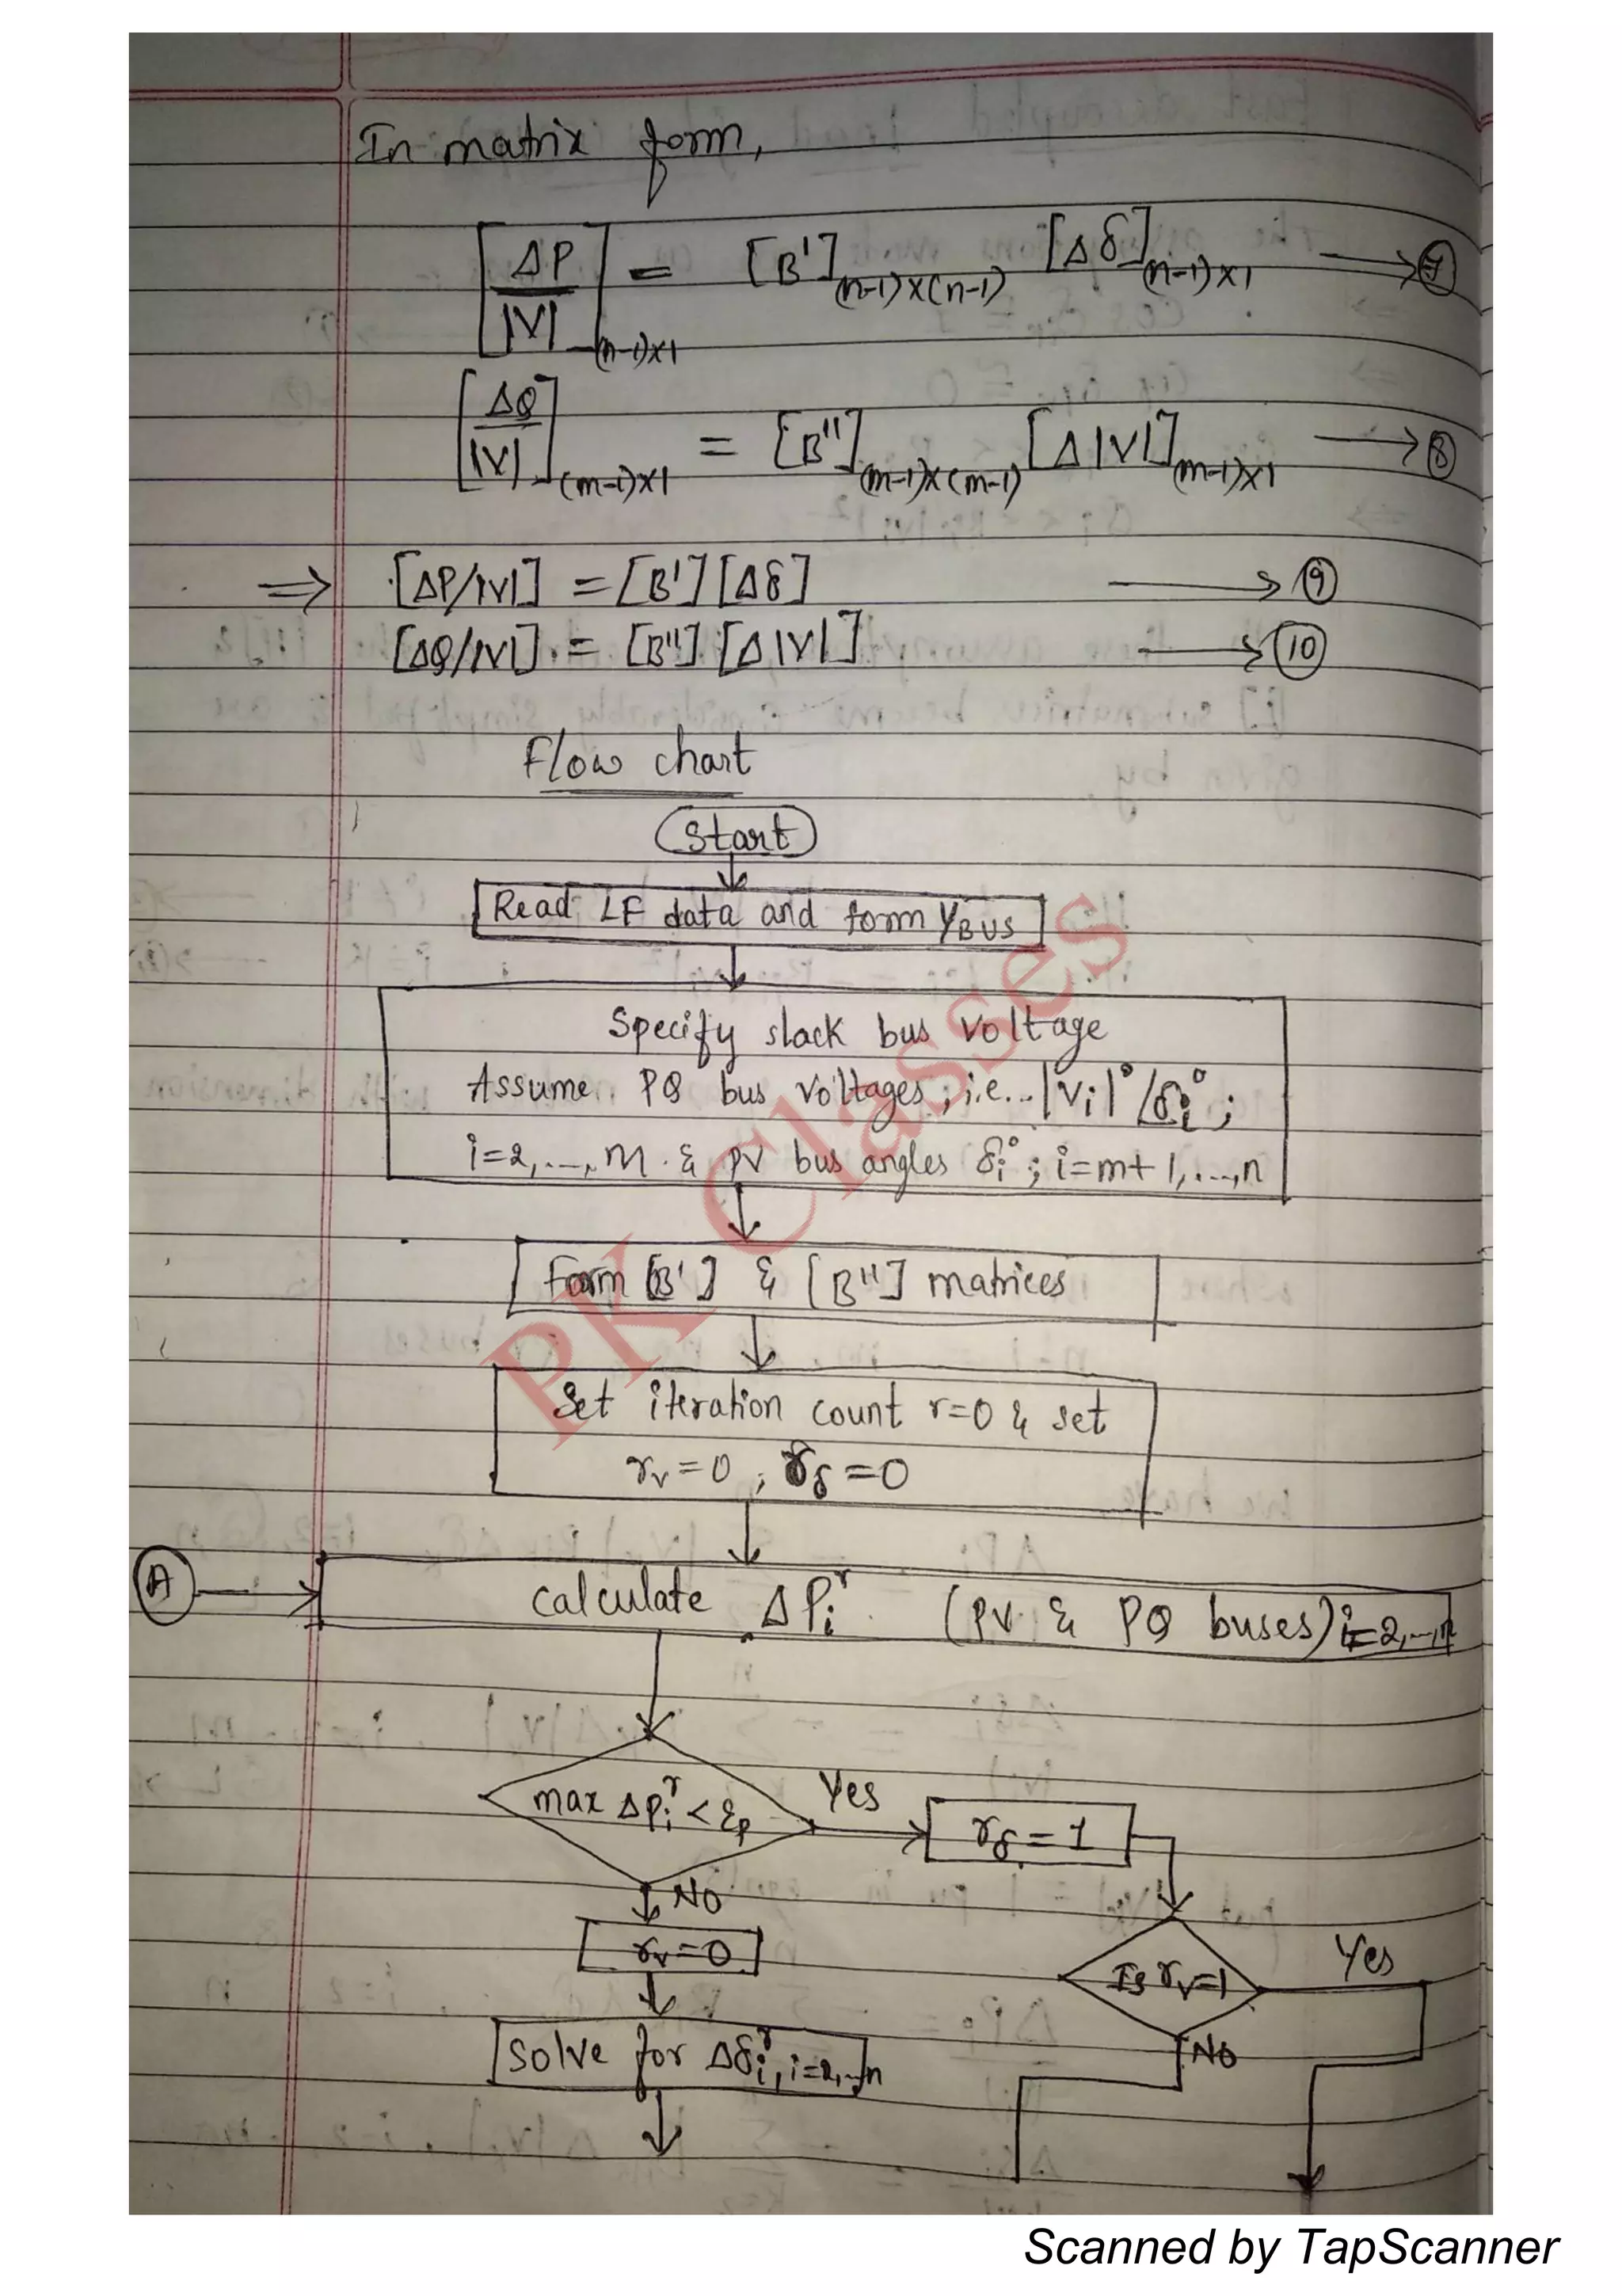 In matrix form,
[ΔP/|V|](n-1)x1 = [B'](n-1)x(n-1) [Δδ](n-1)x1 → 7
[ΔQ/|V|](m-1)x1 = [B''](m-1)x(m-1) [Δ|V|](m-1)x1 → 8
⇒ [ΔP/|V|] = [B'] [Δδ] → 9
[ΔQ/|V|] = [B''] [Δ|V|] → 10
Flow chart
Start
Read LF data and form YBUS
Specify slack bus voltage
Assume PQ bus voltages; i.e... |Vi|° /δi°;
i=2,...,m & PV bus angles δi°; i=m+1,...,n
Form [B'] & [B''] matrices
Set iteration count r=0 & set
rv=0, rδ=0
A
calculate ΔPi^r (PV & PQ buses) i=2,...,n
max ΔPi^r < εp
Yes
rδ=1
NO
rv=0
Is rv=1
Yes
NO
Solve for Δδi^r, i=2,..,n
PK Classes
Scanned by TapScanner